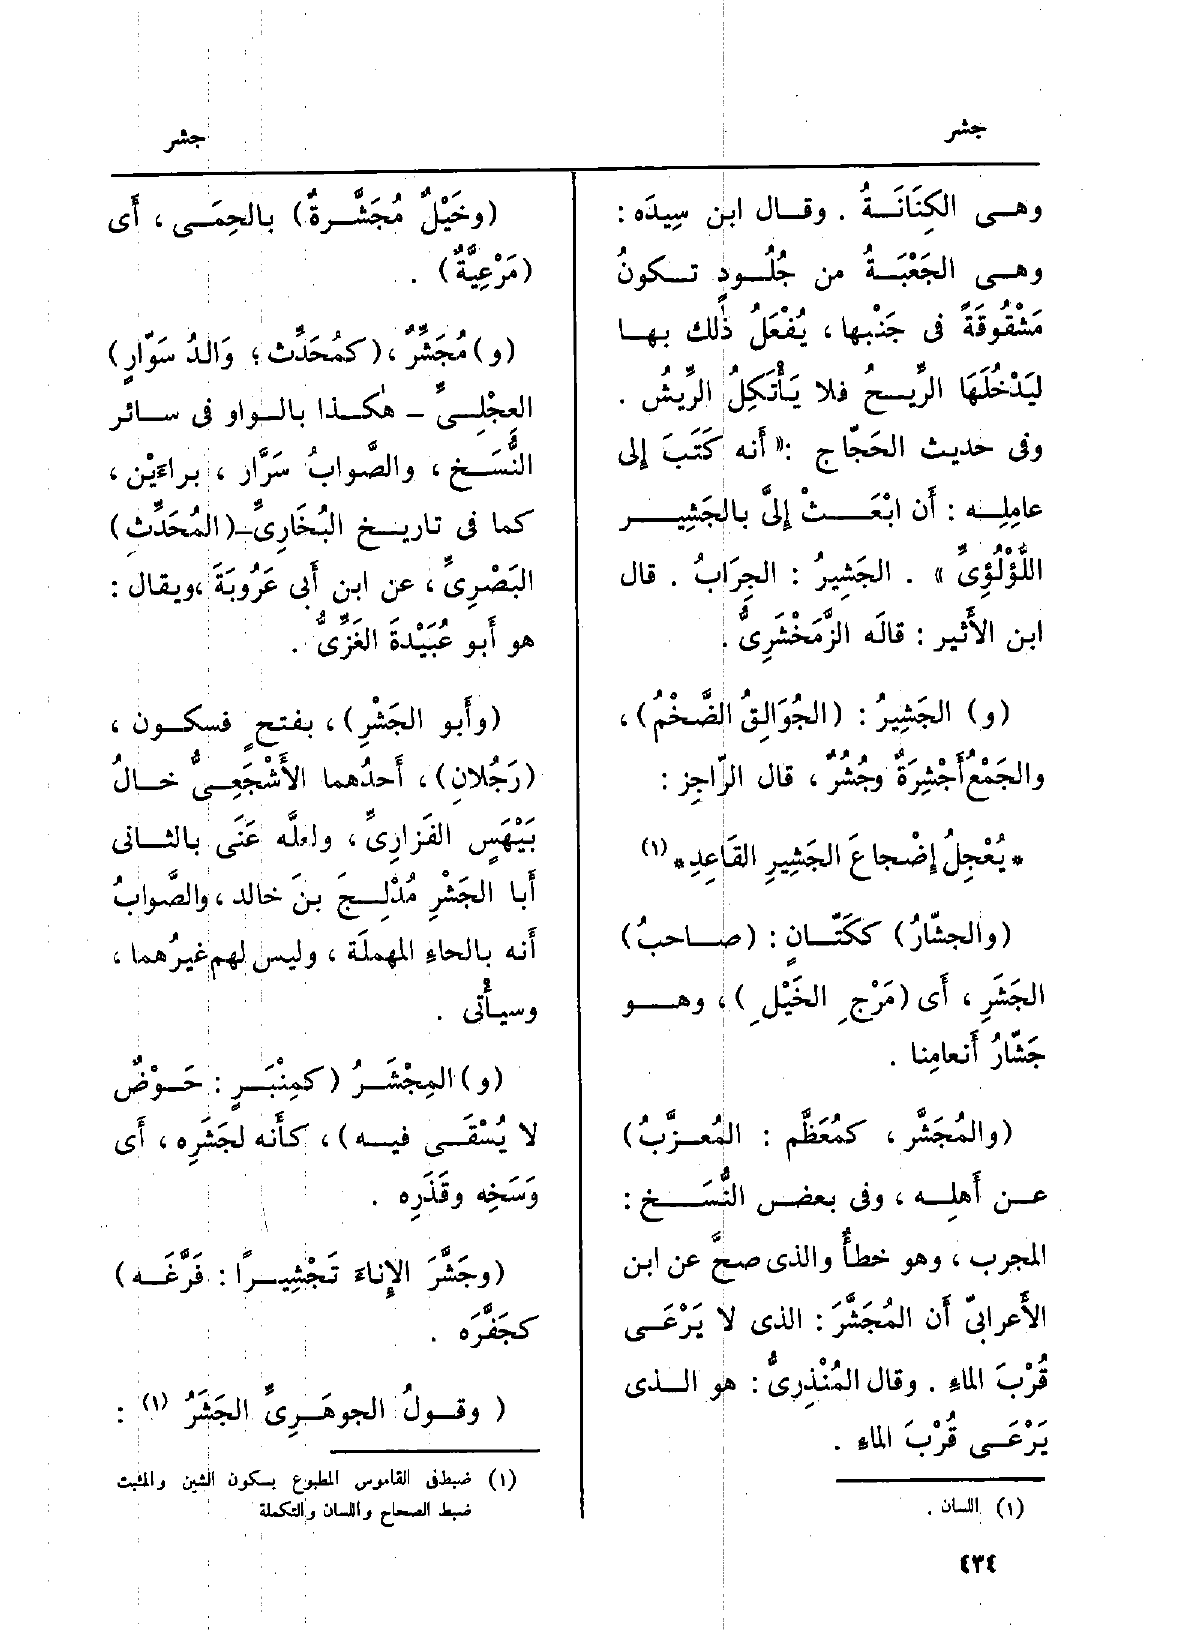 جشر
جشر
وهــى الكِنَانَــةُ . وقــال ابن سِيدَه :
وهــى الجَعْبَــةُ من جُلُــودٍ تــكونُ
مَشْقُوقَةً فى جَنْبها ، يُفْعَلُ ذٰلك بهــا
ليَدْخُلَهَا الرِّيــحُ فلا يَأْتَكِلُ الرِّيشُ .
وفى حديث الحَجّاج :« أنه كَتَبَ إلى
عامِلِــه : أن ابْعَــثْ إِلىَّ بالجَشِيــرِ
اللُّؤْلُؤِىِّ » . الجَشِيرُ : الجِرَابُ . قال
ابن الأَثير : قالَه الزَّمَخْشَرِىُّ .
(و) الجَشِيرُ : (الجُوَالِقُ الضَّخْمُ) ،
والجَمْعُ أَجْشِرَةٌ وجُشُرٌ ، قال الرّاجِز :
* يُعْجِلُ إضْجاعَ الجَشِيرِ القَاعِدِ * (١)
(والجشّارُ) ككَتّــانٍ : (صــاحبُ)
الجَشَرِ ، أى (مَرْجِ الخَيْلِ) ، وهــو
جَشّارُ أنعامِنا .
(والمُجَشَّر ، كمُعَظَّم : المُعزَّبُ)
عــن أَهلِــه ، وفى بعض النُّسَــخ :
المجرب ، وهو خطأٌ والذى صحَّ عن ابن
الأَعرابىّ أن المُجَشَّرَ : الذى لا يَرْعَــى
قُرْبَ الماءِ . وقال المُنْذِرِىُّ : هو الــذى
يَرْعَــى قُرْبَ الماءِ .
(١) اللسان .
(وخَيْلٌ مُجَشَّــرةٌ) بالحِمَــى ، أَى
(مَرْعِيَّةٌ) .
(و) مُجَشِّرٌ ، (كمُحَدِّث ؛ وَالدُ سَوّارٍ)
العِجْلِــىِّ – هٰكــذا بالــواو فى ســائر
النُّسَــخ ، والصَّوابُ سَرَّار ، براءَيْن ،
كما فى تاريــخ البُخَارِىِّ – (المُحَدِّثِ)
البَصْرِىِّ ، عن ابن أَبى عَرُوبَةَ ، ويقال :
هو أَبو عُبَيْدَةَ الغَزِّىُّ .
(وأَبو الجَشْرِ) ، بفتحٍ فسكــون ،
(رَجُلانِ) ، أَحدُهما الأَشْجَعِــىُّ خــالُ
بَيْهَسٍ الفَزارِىِّ ، ولعلَّه عَنَى بالثــانى
أَبا الجَشْرِ مُدْلِــجَ بنَ خالد ، والصَّوابُ
أَنه بالحاءِ المهملَة ، وليس لهم غيرُهما ،
وسيــأْتى .
(و) المِجْشَــرُ (كمِنْبَــرٍ : حَــوْضٌ
لا يُسْقَــى فيــه) ، كأَنه لجَشَرِه ، أَى
وَسَخِه وقَذَرِه .
(وجَشَّرَ الإِناءَ تَجْشِيــرًا : فَرَّغَــه)
كجَفَّرَه .
( وقــولُ الجوهَــرِىِّ الجَشَرُ (١) :
(١) ضبط فى القاموس المطبوع بسكون الشين والمثبت
ضبط الصحاح واللسان والتكملة
٤٣٤